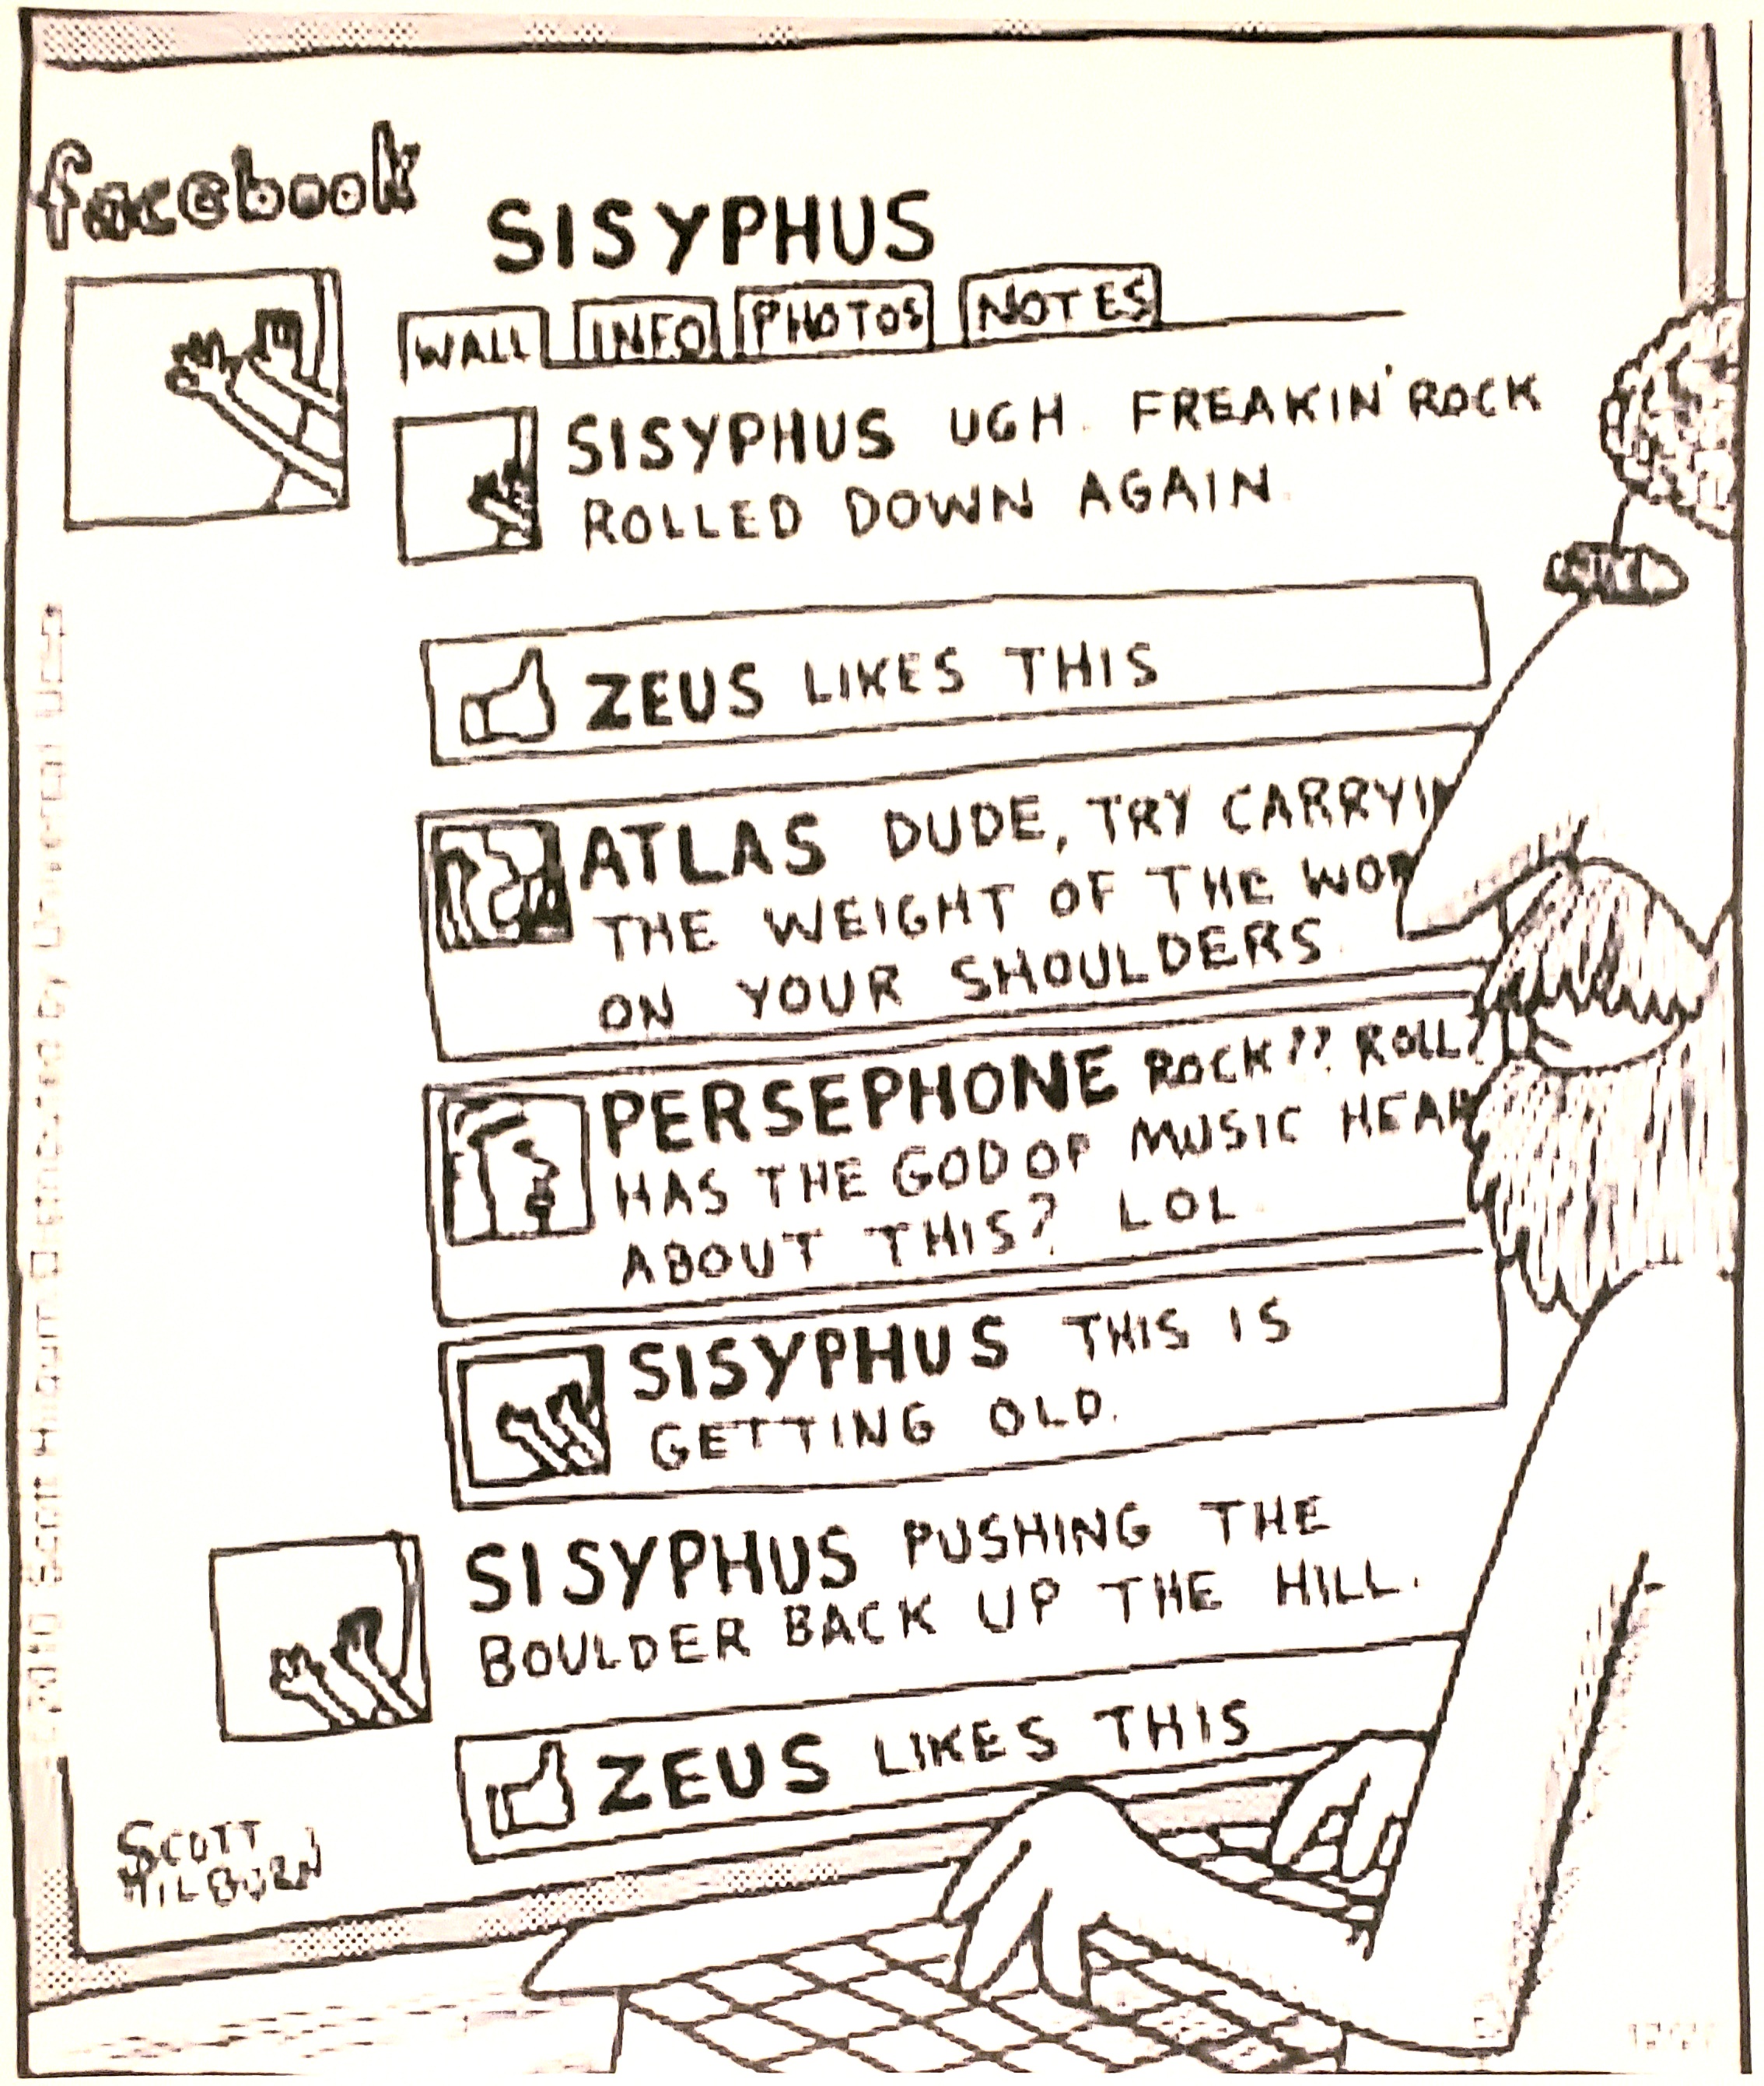 facebook
SISYPHUS
WALL INFO PHOTOS NOTES
SISYPHUS UGH. FREAKIN' ROCK
ROLLED DOWN AGAIN.
ZEUS LIKES THIS
ATLAS DUDE, TRY CARRYIN
THE WEIGHT OF THE WOR
ON YOUR SHOULDERS.
PERSEPHONE ROCK?? ROLL?
HAS THE GOD OF MUSIC HEAR
ABOUT THIS? LOL
SISYPHUS THIS IS
GETTING OLD.
SISYPHUS PUSHING THE
BOULDER BACK UP THE HILL.
ZEUS LIKES THIS
SCOTT
HILBURN
Scott Hilburn Distributed by Universal Uclick